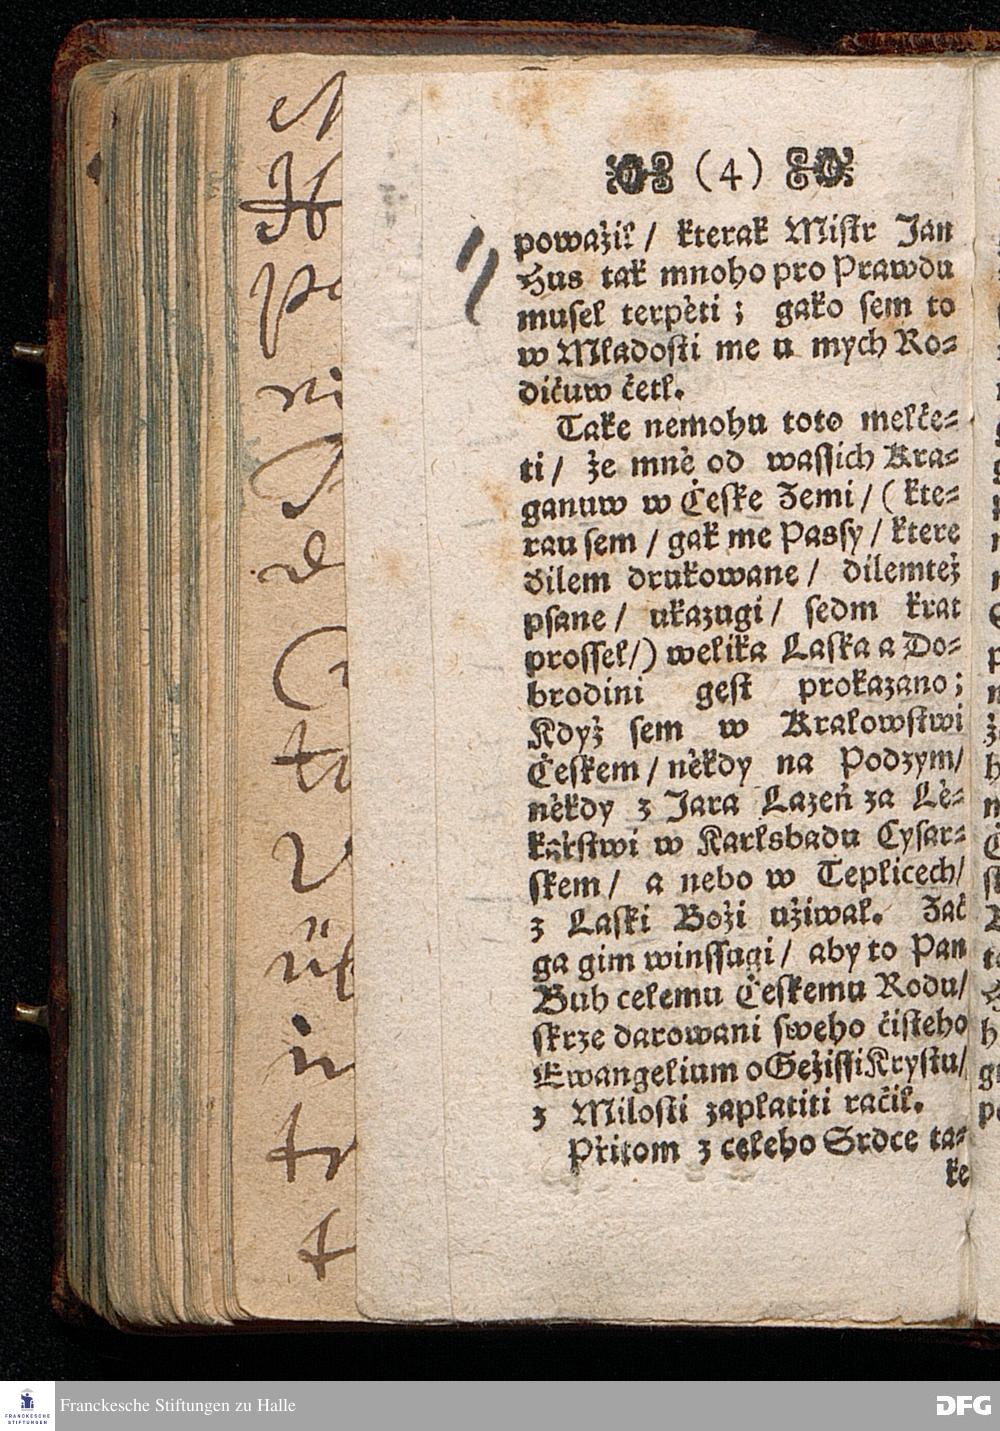 (4)
powažil / kterak Mistr Jan
Hus tak mnoho pro Prawdu
musel terpèti ; gako sem to
w Mladosti me u mych Ro⸗
dičuw četl.
Take nemohu toto melče⸗
ti / že mnè od wassich Kra⸗
ganuw w Česke Zemi / ( kte⸗
rau sem / gak me Passy / ktere
dilem drukowane / dilemtež
psane / ukazugi / sedm krat
prossel /) welika Laska a Do⸗
brodini gest prokazano ;
Když sem w Kralowstwi
Českem / nèkdy na Podzym /
nèkdy z Jara Lazeň za Lè⸗
kařstwi w Karlsbadu Cysar⸗
skem / a nebo w Teplicech /
z Laski Boži uživał. Zač
ga gim winssugi / aby to Pan
Buh celemu Českemu Rodu /
skrze darowani sweho čisteho
Ewangelium o Gežissi Krystu /
z Milosti zaplatiti račil.
Přitom z celeho Srdce ta⸗
ke
Franckesche Stiftungen zu Halle
DFG
FRANCKESCHE
STIFTUNGEN